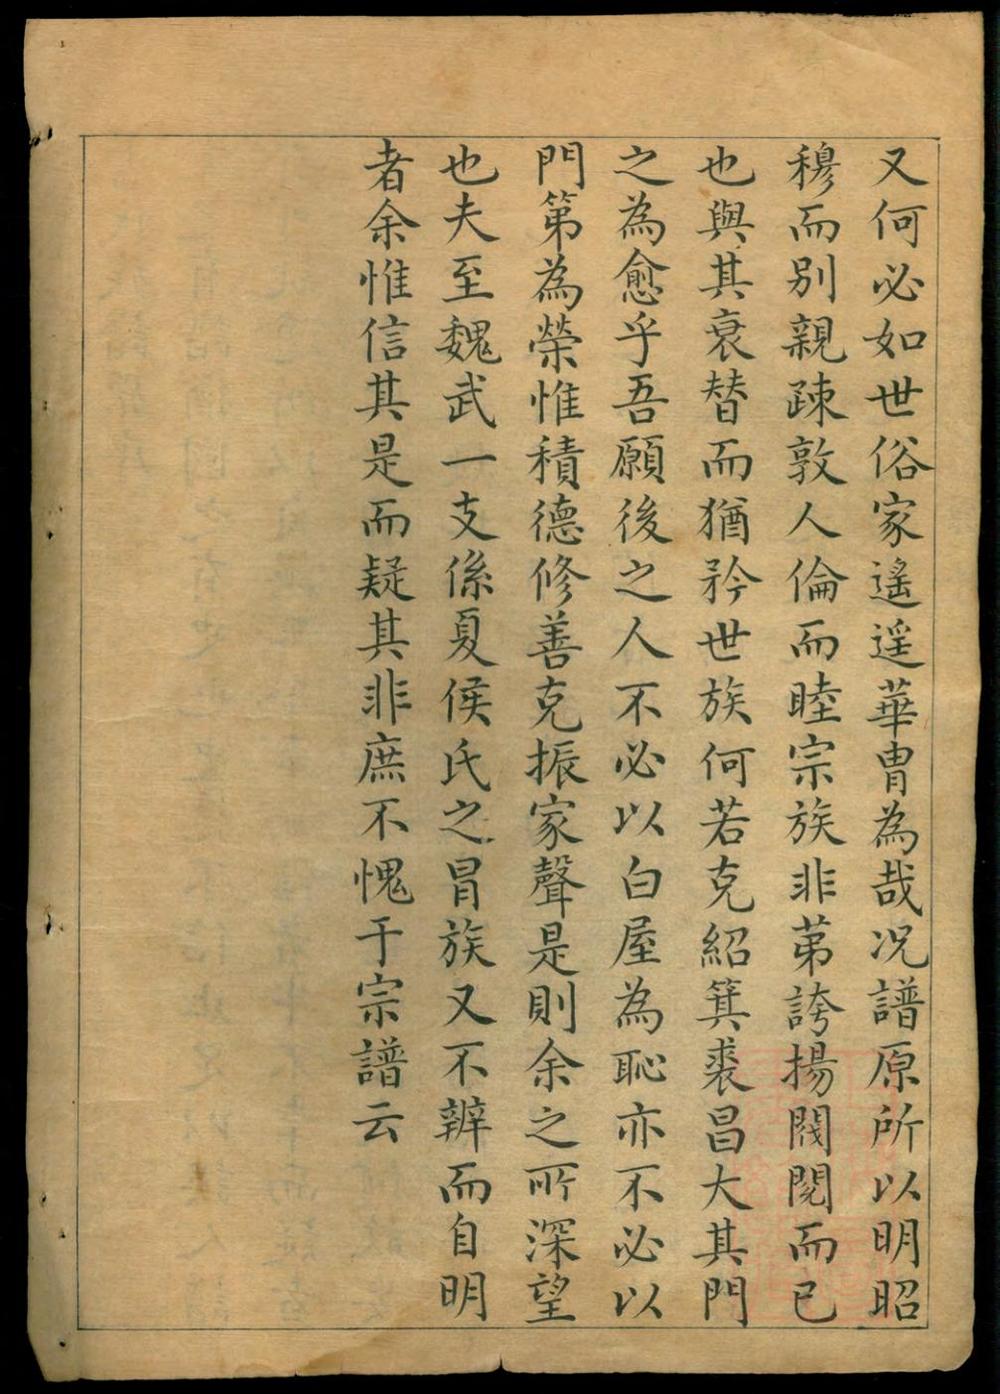 又何必如世俗家遙遙華胄為哉况譜原所以明昭
穆而別親疎敦人倫而睦宗族非苐誇揚閥閱而已
也與其衰替而猶矜世族何若克紹箕裘昌大其門
之為愈乎吾願後之人不必以白屋為恥亦不必以
門第為榮惟積德修善克振家聲是則余之所深望
也夫至魏武一支係夏侯氏之冒族又不辨而自明
者余惟信其是而疑其非庶不愧于宗譜云